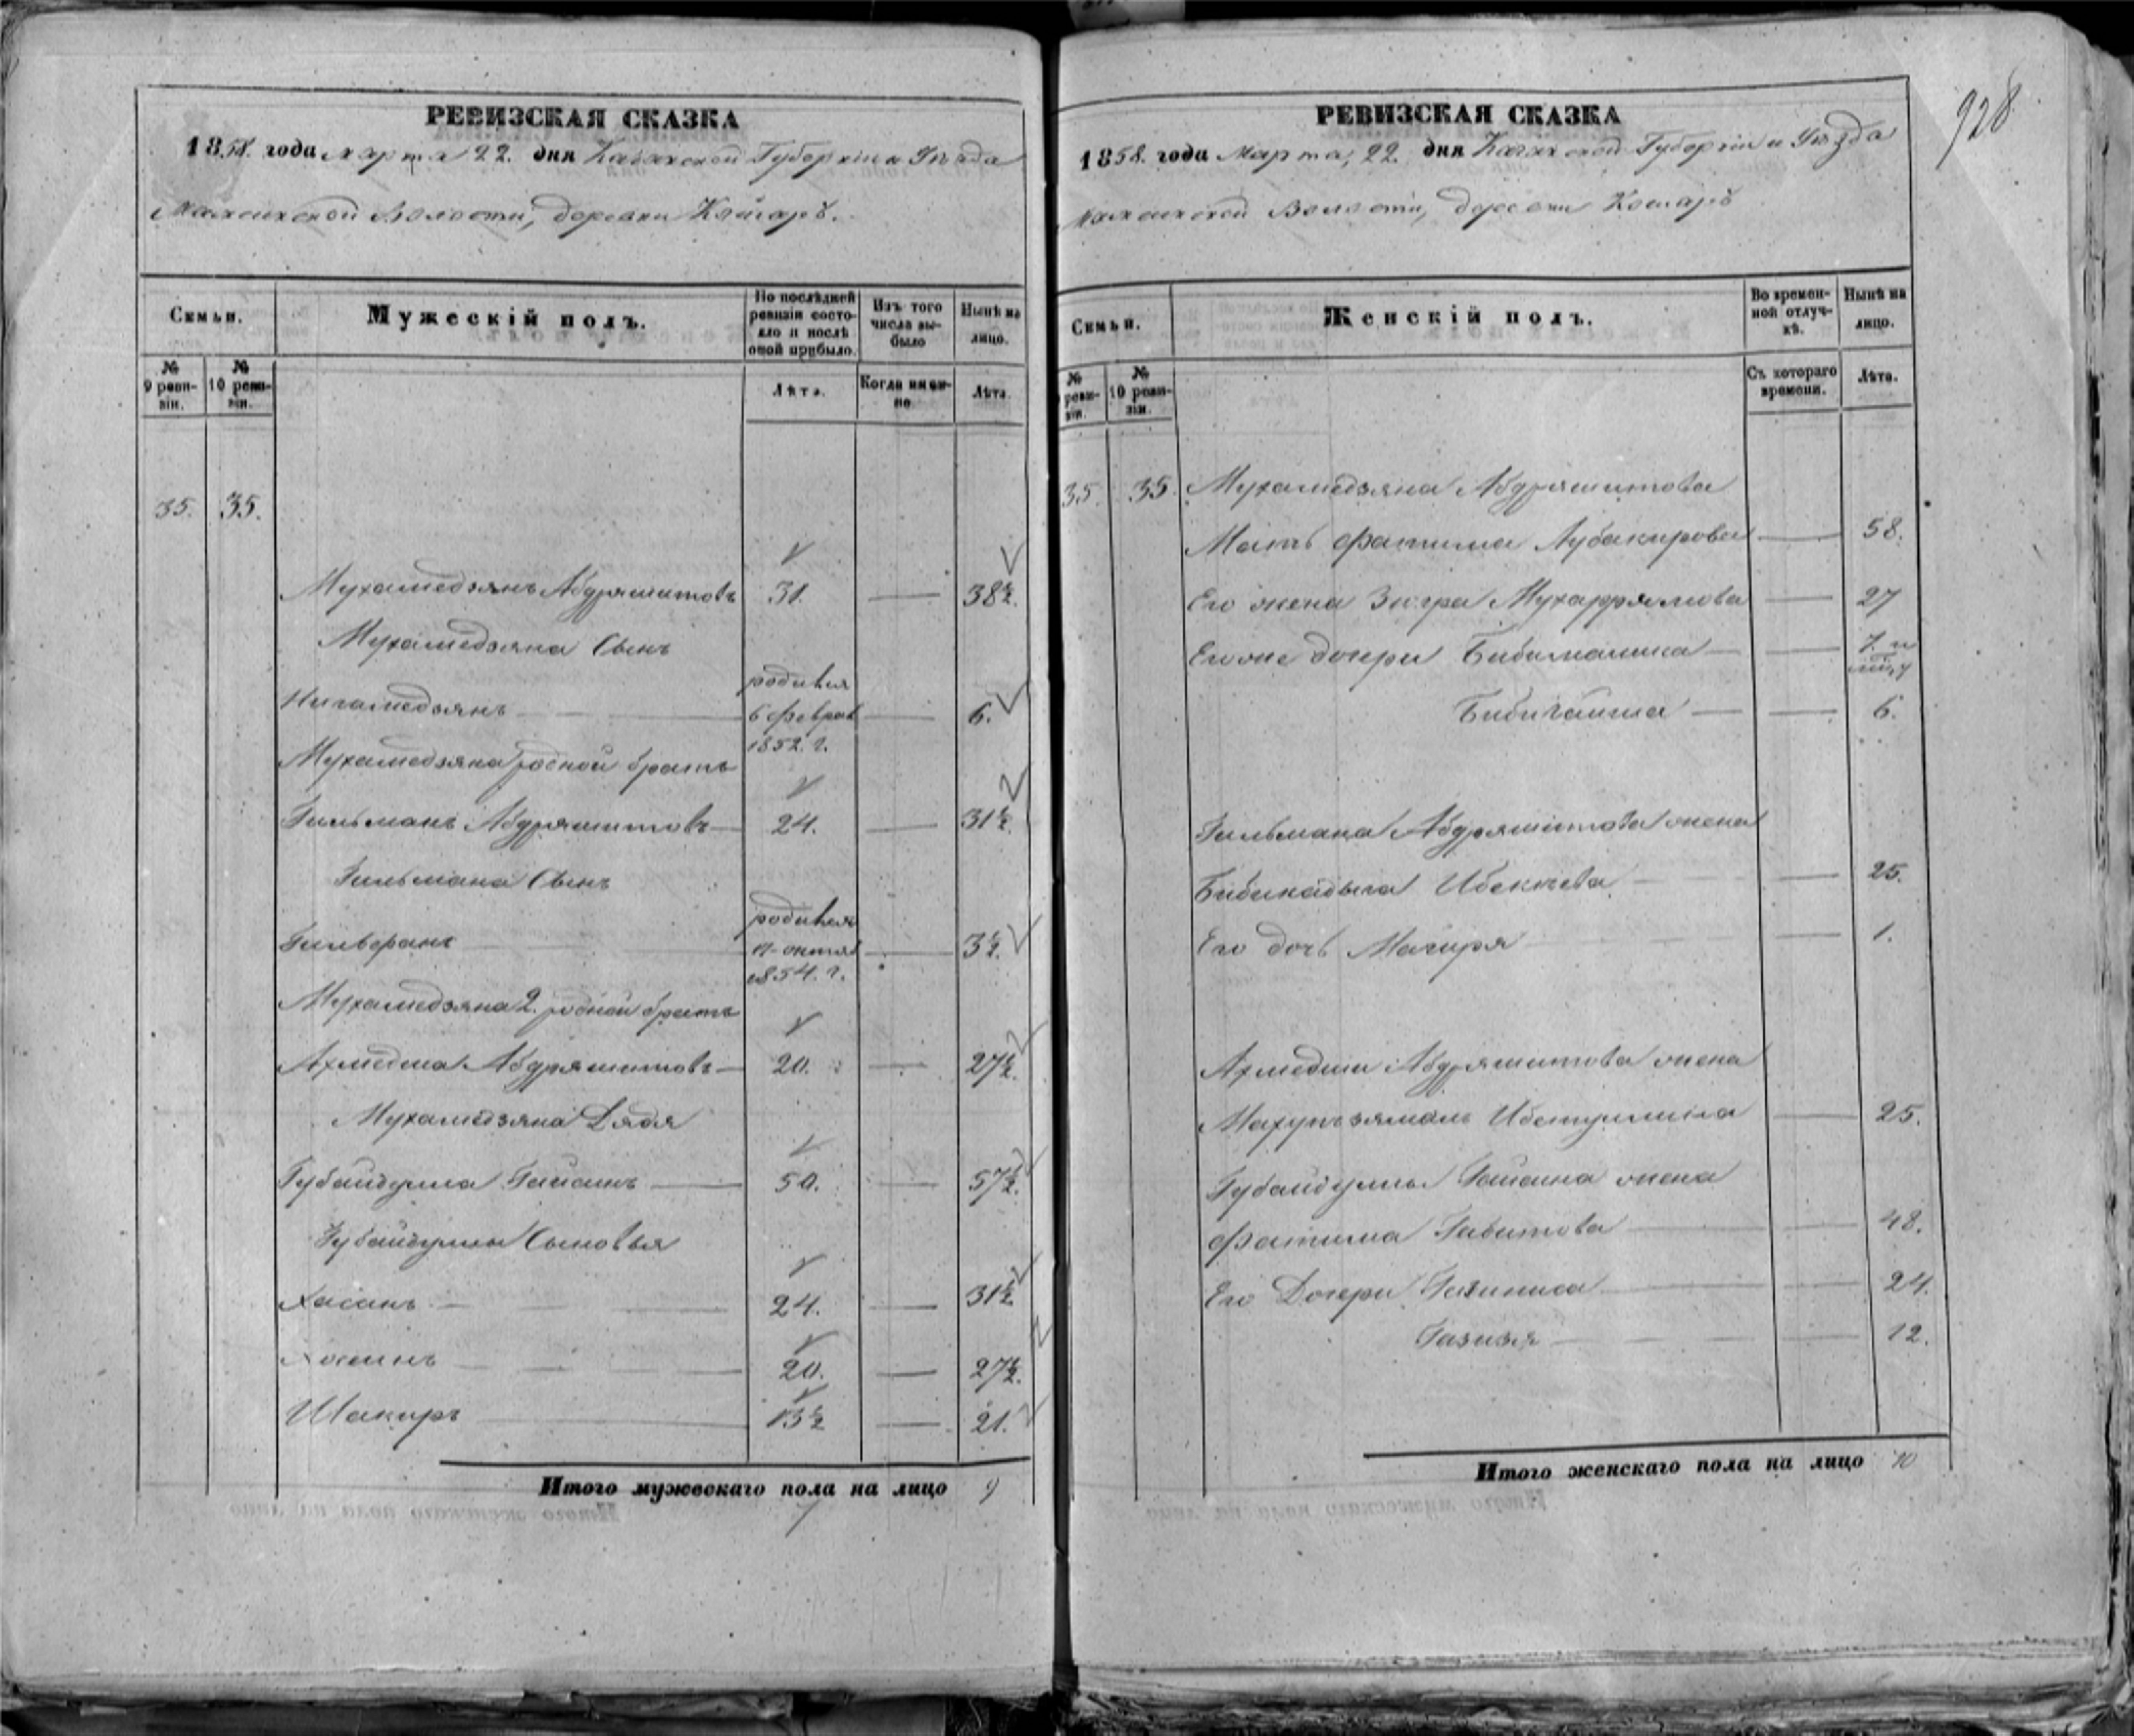 928
РЕВИЗСКАЯ СКАЗКА
1858. года Марта 22. дня Казанской Губерніи и Уѣзда
Волости, деревни
Семьи.
Мужескій полъ.
По послѣдней ревизіи состояло и послѣ оной прибыло.
Изъ того числа выбыло
Нынѣ на лицо.
№ 9 ревизіи.
№ 10 ревизіи.
Лѣта.
Когда именно.
Лѣта.
35. 35.
Мухамедзянъ Абдряшитовъ 31. — 38½.
Мухамедзяна Сынъ
Нигамедзянъ — родился 6 феврал 1852. г. — 6.
Мухамедзяна родной братъ
Гильманъ Абдряшитовъ — 24. — 31½.
Гильмана Сынъ
родился октяб 1854. г. — 3½.
Мухамедзяна 2. родной братъ
Ахмедша Абдряшитовъ — 20. — 27½.
Мухамедзяна Дядя
Губайдулла — 50. — 57½.
Губайдуллы Сыновья
Хасанъ — 24. — 31½
Хосеинъ — 20. — 27½.
Шакиръ — 13½ — 21.
Итого мужескаго пола на лицо 9
РЕВИЗСКАЯ СКАЗКА
1858. года Марта, 22. дня Казанской Губерніи и Уѣзда
Волости, деревни
Семьи.
Женскій полъ.
Во временной отлучкѣ.
Нынѣ на лицо.
№ ревизіи.
№ 10 ревизіи.
Съ котораго времени.
Лѣта.
35. 35. Мухамедзяна Абдряшитова
Мать Фатима Аубакирова — 58.
Его жена Зигра — 27
Его же дочери — 7.
6.
Гильмана Абдряшитова жена
Бибикадыча — 25.
Его дочь Магиря — 1.
Ахмедши Абдряшитова жена
— 25.
Губайдуллы жена
Фатима Габитова — 48.
Его Дочери — 24.
Газизя — 12.
Итого женскаго пола на лицо 10